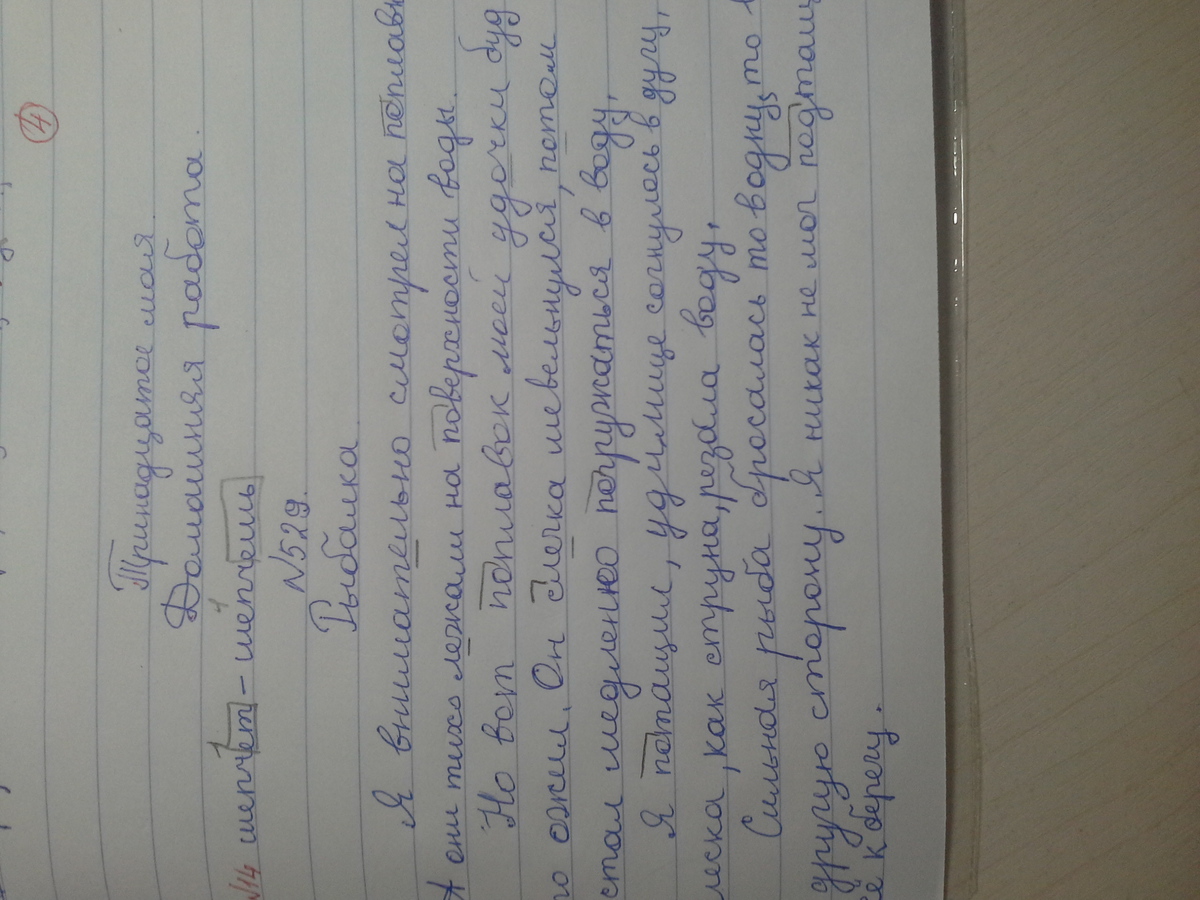 ④
Тринадцатое мая
Домашняя работа.
№14 шепчет – шепчешь
№529.
Рыбалка
Я внимательно смотрел на поплавк
А они тихо лежали на поверхности воды.
Но вот поплавок моей удочки буд
то ожил. Он слегка шевельнулся, потом
стал медленно погружаться в воду,
Я потащил, удилище согнулось в дугу,
леска, как струна, резала воду,
Сильная рыба бросалась то в одну, то в
другую сторону. Я никак не мог подтащ
её к берегу.